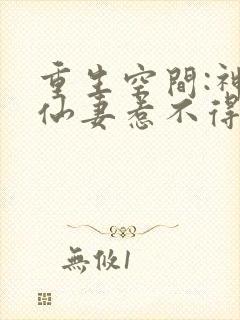 重生空間:神
仙妻惹不得
無攸1